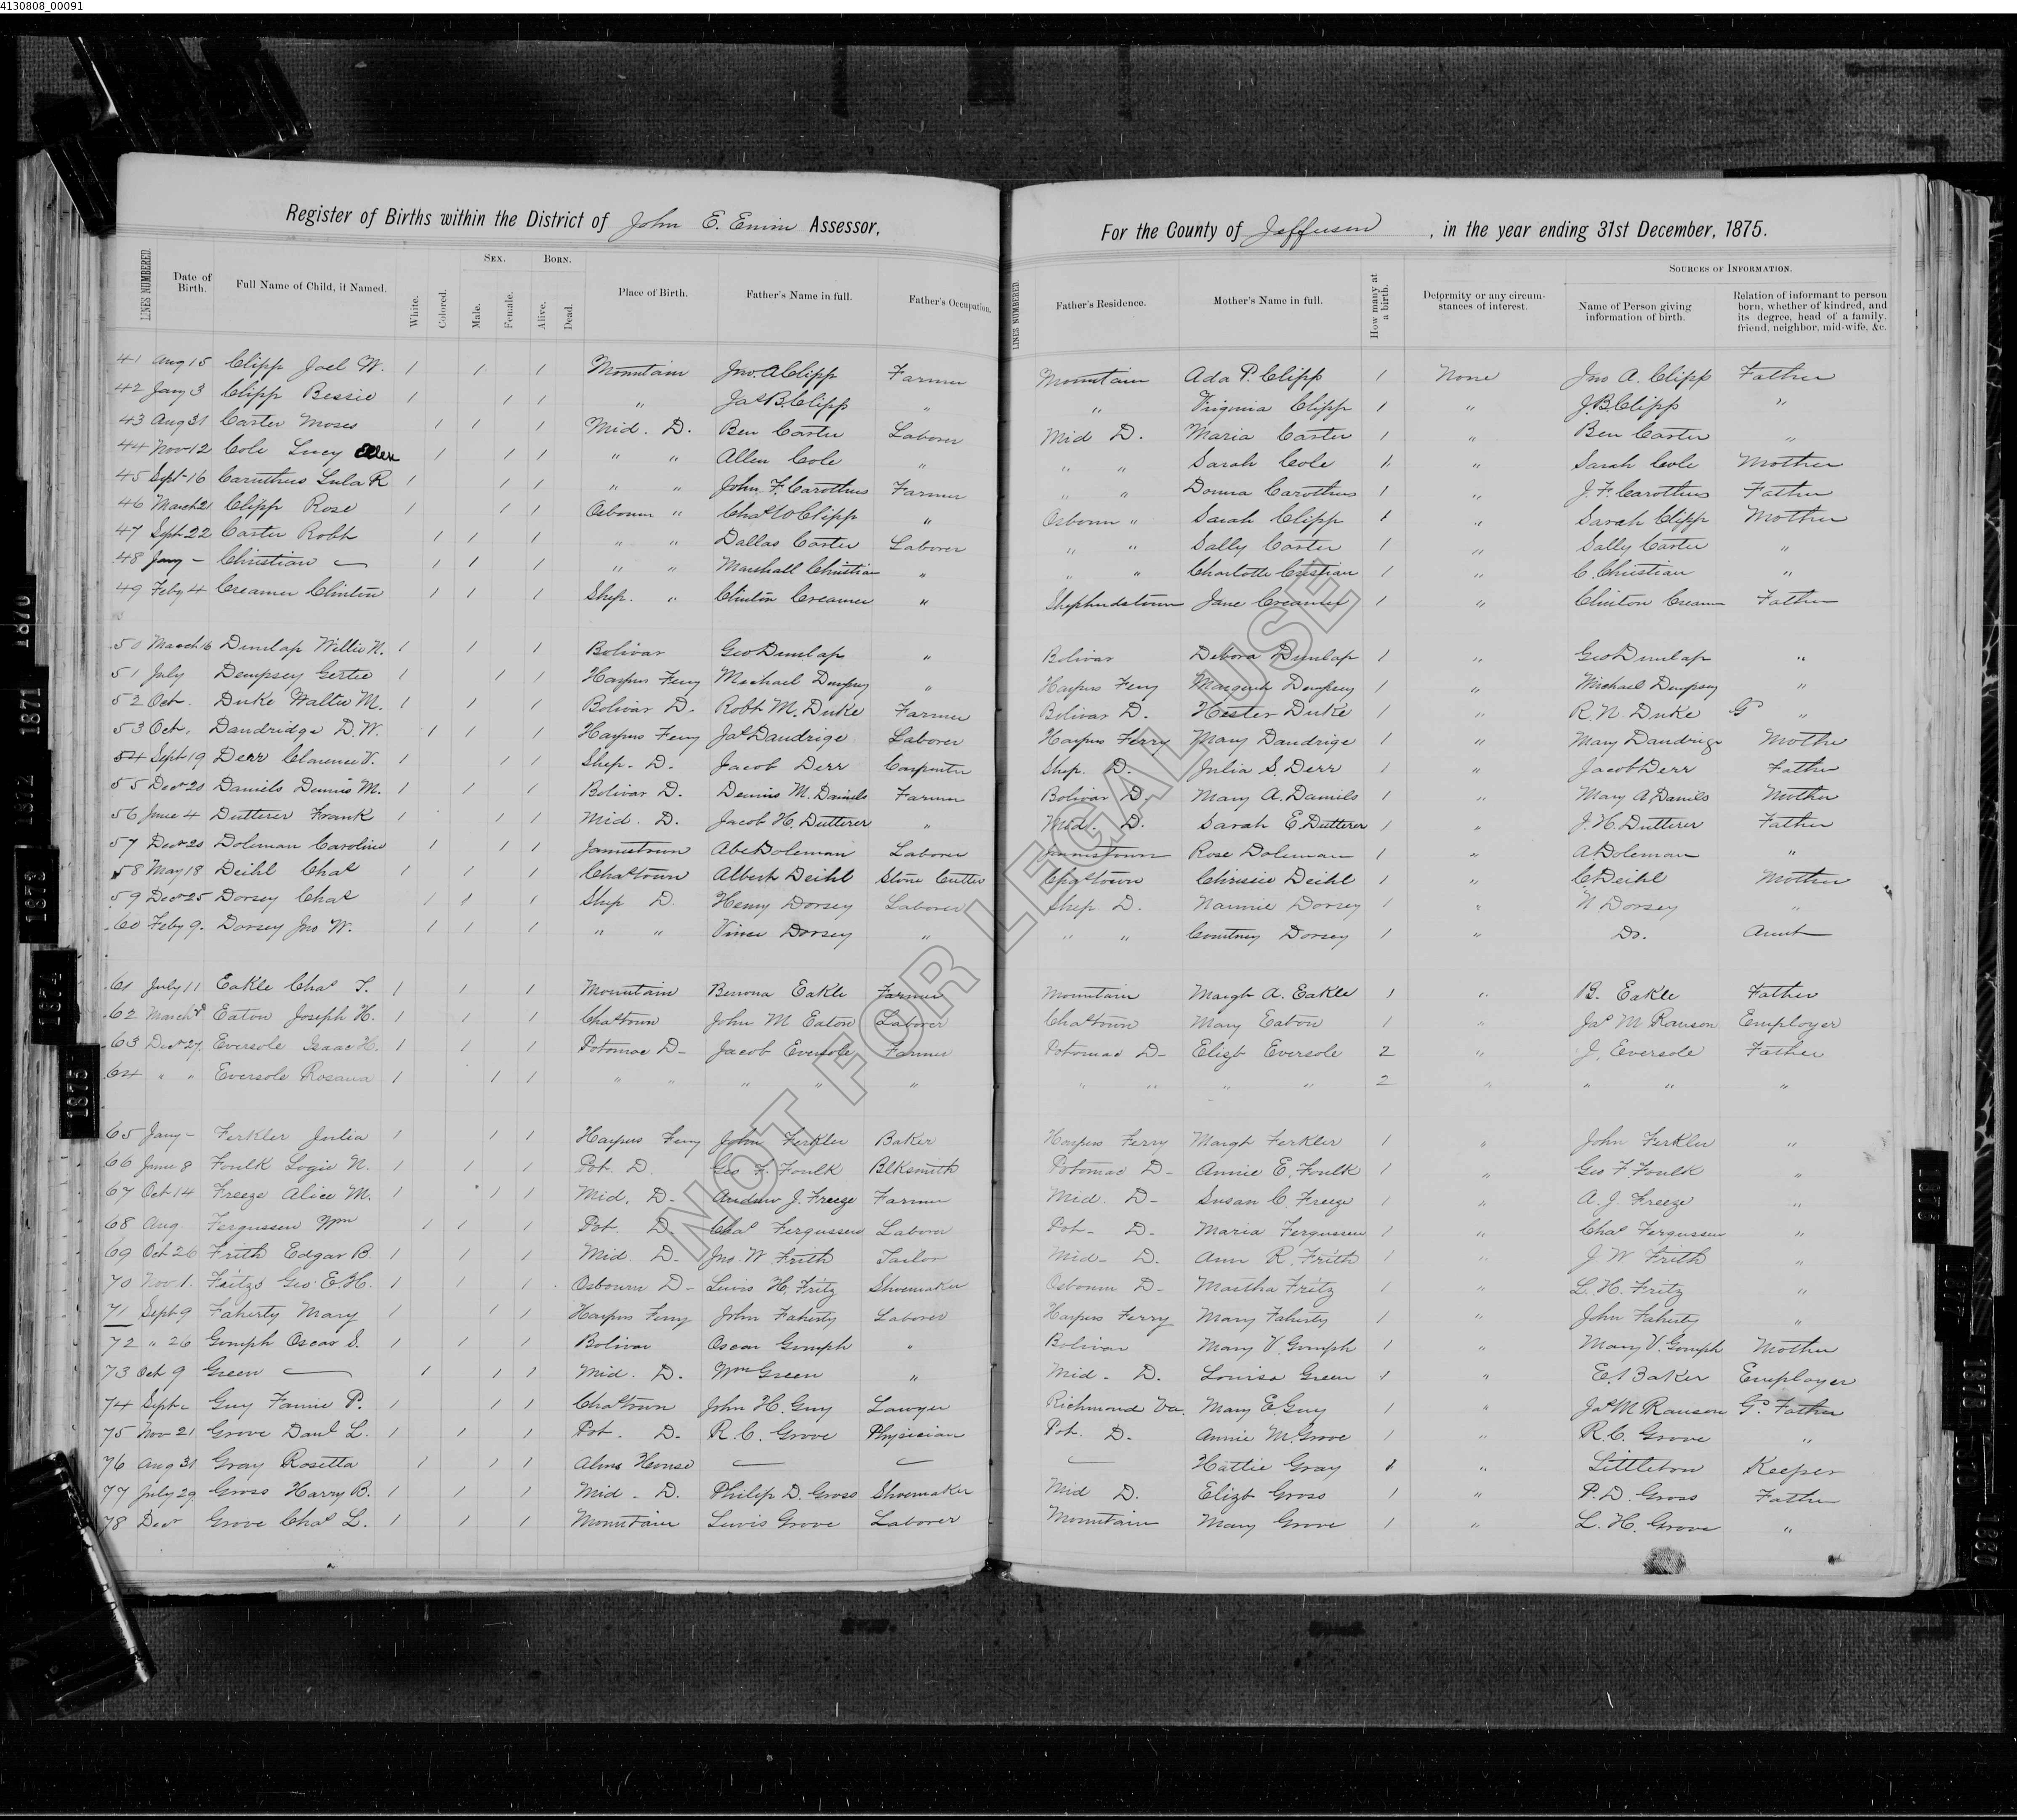 4130808_00091
Register of Births within the District of John E. Ervin Assessor,
For the County of Jefferson, in the year ending 31st December, 1875.
LINES NUMBERED. Date of Birth. Full Name of Child, if Named. White. Colored. SEX. Male. Female. BORN. Alive. Dead. Place of Birth. Father's Name in full. Father's Occupation. LINES NUMBERED. Father's Residence. Mother's Name in full. How many at a birth. Deformity or any circumstances of interest. SOURCES OF INFORMATION. Name of Person giving information of birth. Relation of informant to person born, whether of kindred, and its degree, head of a family, friend, neighbor, mid-wife, &c.
41 Aug 15 Clipp Joel W. 1 1 1 Mountain Jno. A Clipp Farmer Mountain Ada P. Clipp 1 None Jno A. Clipp Father
42 Jany 3 Clipp Bessie 1 1 1 " Jas B. Clipp " " Virginia Clipp 1 " J. B. Clipp "
43 Aug 31 Carter Moses 1 1 1 Mid. D. Ben Carter Laborer Mid D. Maria Carter 1 " Ben Carter "
44 Nov 12 Cole Lucy Ellen 1 1 1 " " Allen Cole " " " Sarah Cole 1 " Sarah Cole Mother
45 Sept 16 Caruthers Lula R 1 1 1 " " John F. Carothers Farmer " " Donna Carothers 1 " J. F. Carothers Father
46 March 21 Clipp Rose 1 1 1 Osbourn " Chas O Clipp " Osbourn " Sarah Clipp 1 " Sarah Clipp Mother
47 Sept 22 Carter Robt 1 1 1 " " Dallas Carter Laborer " " Sally Carter 1 " Sally Carter "
48 Jany - Christian — 1 1 1 " " Marshall Christian " " " Charlotte Cristian 1 " C. Christian "
49 Feby 4 Creamer Clinton 1 1 1 Shep. " Clinton Creamer " Shepherdstown Jane Creamer 1 " Clinton Creamer Father
50 March 16 Dunlap Willie N. 1 1 1 Bolivar Geo Dunlap " Bolivar Debora Dunlap 1 " Geo Dunlap "
51 July Dempsey Gertie 1 1 1 Harpers Ferry Machael Dempsey " Harpers Ferry Margaret Dempsey 1 " Michael Dempsey "
52 Oct. Duke Walter M. 1 1 1 Bolivar D. Robt M. Duke Farmer Bolivar D. Hester Duke 1 " R. N. Duke G "
53 Oct. Dandridge D. W. 1 1 1 Harpers Ferry Jas Dandrige Laborer Harpers Ferry Mary Dandrige 1 " Mary Dandrige Mother
54 Sept 19 Derr Clarence V. 1 1 1 Shep. D. Jacob Derr Carpenter Shep. D. Julia S. Derr 1 " Jacob Derr Father
55 Decr 20 Daniels Dennis M. 1 1 1 Bolivar D. Dennis M. Daniels Farmer Bolivar D. Mary A. Daniels 1 " Mary A. Daniels Mother
56 June 4 Dutterer Frank 1 1 1 Mid. D. Jacob H. Dutterer " Mid. D. Sarah E. Dutterer 1 " J. H. Dutterer Father
57 Decr 20 Doleman Caroline 1 1 1 Jamestown Abe Doleman Laborer Jamestown Rose Doleman 1 " A. Doleman "
58 May 18 Deihl Chas 1 1 1 Chastown Albert Deihl Stone Cutter Chastown Chrissie Deihl 1 " C. Deihl Mother
59 Decr 25 Dorsey Chas 1 1 1 Shep D. Henry Dorsey Laborer Shep. D. Nannie Dorsey 1 " N Dorsey "
60 Feby 9. Dorsey Jno W. 1 1 1 " " Vince Dorsey " " " Courtney Dorsey 1 " Do. Aunt
61 July 11 Eakle Chas T. 1 1 1 Mountain Benona Eakle Farmer Mountain Margt A. Eakle 1 " B. Eakle Father
62 March Eaton Joseph H. 1 1 1 Chastown John M Eaton Laborer Chastown Mary Eaton 1 " Jas M. Ranson Employer
63 Decr 27 Eversole Isaac H. 1 1 1 Potomac D- Jacob Eversole Farmer Potomac D- Elizt Eversole 2 " J. Eversole Father
64 " " Eversole Rosana 1 1 1 " " " " " " " " " 2 " " " "
65 Jany - Ferkler Julia 1 1 1 Harpers Ferry John Ferkler Baker Harpers Ferry Margt Ferkler 1 " John Ferkler "
66 June 8 Foulk Logie N. 1 1 1 Pot. D. Geo F. Foulk Blksmith Potomac D- Annie E. Foulk 1 " Geo F. Foulk "
67 Oct 14 Freeze Alice M. 1 1 1 Mid. D- Andrew J. Freeze Farmer Mid. D- Susan C. Freeze 1 " A. J. Freeze "
68 Aug Fergussen Wm 1 1 1 Pot. D. Chas Fergussen Laborer Pot- D- Maria Fergussen 1 " Chas Fergussen "
69 Oct 26 Frith Edgar B. 1 1 1 Mid. D- Jno. W. Frith Tailor Mid- D. Ann R. Frith 1 " J. W Frith "
70 Nov 1. Fritzs Geo. E. H. 1 1 1 Osbourn D- Lewis H. Fritz Shoemaker Osbourn D- Martha Fritz 1 " L. H. Fritz "
71 Sept 9 Faherty Mary 1 1 1 Harpers Ferry John Faherty Laborer Harpers Ferry Mary Faherty 1 " John Faherty "
72 " 26 Gomph Oscar S. 1 1 1 Bolivar Oscar Gomph " Bolivar Mary V. Gomph 1 " Mary V. Gomph Mother
73 Oct 9 Green — 1 1 1 Mid. D. Wm Green " Mid- D. Louisa Green 1 " E. A Baker Employer
74 Sept - Guy Fannie P. 1 1 1 Chastown John H. Guy Lawyer Richmond Va. Mary E. Guy 1 " Jas M Ranson G. Father
75 Nov 21 Grove Danl L. 1 1 1 Pot. D. R. C. Grove Physician Pot. D. Annie M. Grove 1 " R. C. Grove "
76 Aug 31 Gray Rosetta 1 1 1 Alms House — — — Hattie Gray 1 " Littleton Keeper
77 July 29 Gross Harry B. 1 1 1 Mid- D. Philip D. Gross Shoemaker Mid D. Elizt Gross 1 " P. D. Gross Father
78 Decr Grove Chas L. 1 1 1 Mountain Lewis Grove Laborer Mountain Mary Grove 1 " L. H. Grove "
NOT FOR LEGAL USE
1870
1871
1872
1873
1874
1875
1876
1877
1878 1879 1880